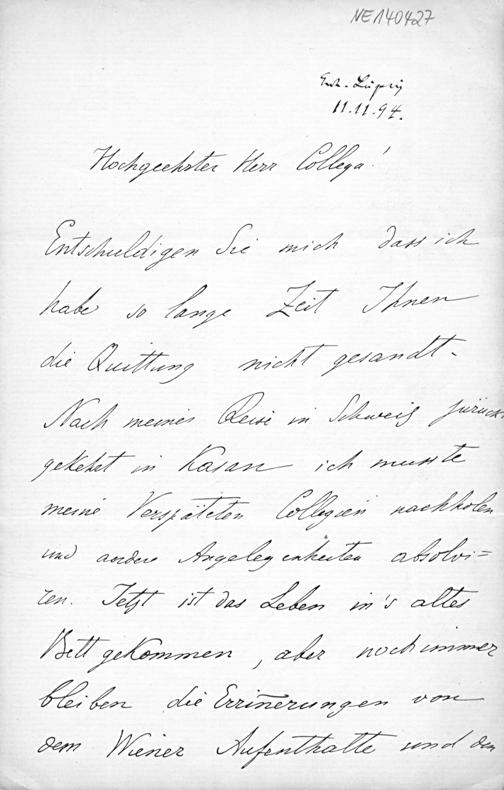 NE140427
11.11.94.
Hochgeehrter Herr Collega!
Entschuldigen Sie mich dass ich
habe so lange Zeit Ihnen
die Quittung nicht gesandt.
Nach meiner Reise in Schweiz zurück-
gekehrt in Kasan ich musste
meine Verspäteten Collegien nachholen
und andere Angelegenheiten absolvi=
ren. Jetzt ist das Leben in's altes
Bett gekommen, aber noch immer
bleiben die Erinnerungen von
dem Wiener Aufenthalte und den